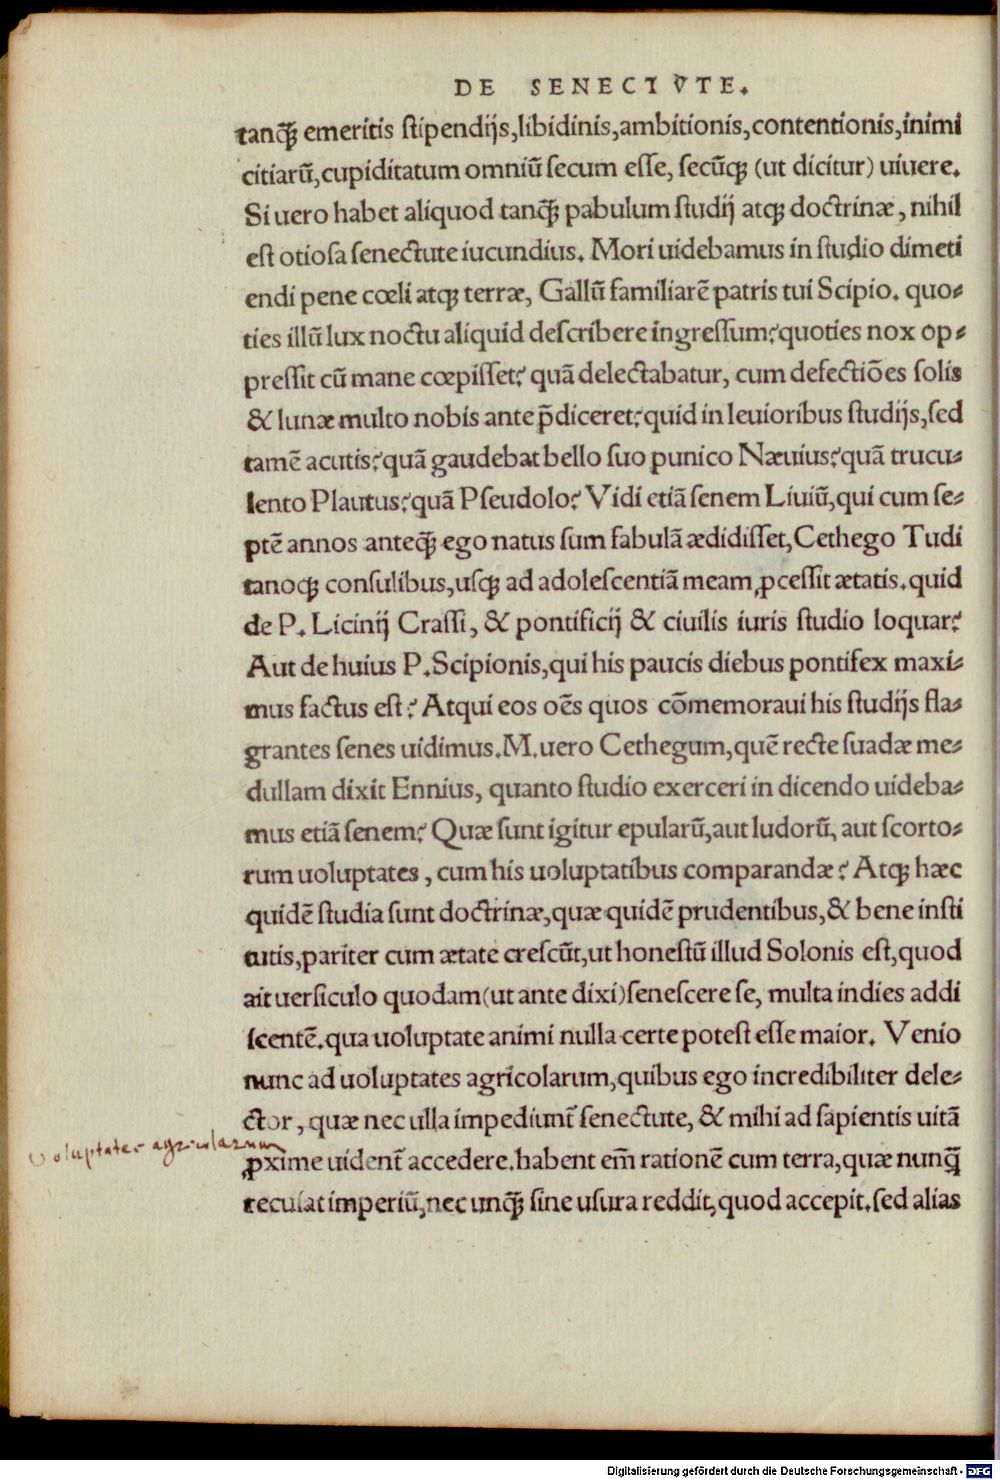 DE SENECTVTE.
tanq̃ȝ emeritis ſtipendijs,libidinis,ambitionis,contentionis,inimi
citiarũ,cupiditatum omniũ ſecum eſſe, ſecũqȝ (ut dicitur) uiuere.
Si uero habet aliquod tanq̃ȝ pabulum ſtudij atqȝ doctrinæ, nihil
eſt otioſa ſenectute iucundius. Mori uidebamus in ſtudio dimeti
endi pene cœli atqȝ terræ, Gallũ familiarẽ patris tui Scipio. quo-
ties illũ lux noctu aliquid deſcribere ingreſſum? quoties nox op-
preſſit cũ mane cœpiſſet? quã delectabatur, cum defectiões ſolis
& lunæ multo nobis ante p̃diceret? quid in leuioribus ſtudijs, ſed
tamẽ acutis? quã gaudebat bello ſuo punico Næuius? quã trucu-
lento Plautus? quã Pſeudolo? Vidi etiã ſenem Liuiũ,qui cum ſe-
ptẽ annos anteq̃ȝ ego natus ſum fabulã ædidiſſet,Cethego Tudi
tanoqȝ conſulibus,uſqȝ ad adoleſcentiã meam ꝓceſſit ætatis.quid
de P. Licinij Craſſi, & pontificij & ciuilis iuris ſtudio loquar?
Aut de huius P.Scipionis,qui his paucis diebus pontifex maxi-
mus factus eſt? Atqui eos oẽs quos cõmemoraui his ſtudijs fla-
grantes ſenes uidimus.M.uero Cethegum,quẽ recte ſuadæ me-
dullam dixit Ennius, quanto ſtudio exerceri in dicendo uideba-
mus etiã ſenem? Quæ ſunt igitur epularũ,aut ludorũ, aut ſcorto-
rum uoluptates, cum his uoluptatibus comparandæ? Atqȝ hæc
quidẽ ſtudia ſunt doctrinæ,quæ quidẽ prudentibus,& bene inſti
tutis,pariter cum ætate creſcũt,ut honeſtũ illud Solonis eſt,quod
ait uerſiculo quodam(ut ante dixi)ſeneſcere ſe, multa indies addi
ſcentẽ.qua uoluptate animi nulla certe poteſt eſſe maior. Venio
nunc ad uoluptates agricolarum,quibus ego incredibiliter dele-
ctor, quæ nec ulla impediunt᷑ ſenectute, & mihi ad ſapientis uitã
uoluptates agricolarum
ꝓxime uident᷑ accedere.habent em̃ rationẽ cum terra,quæ nunq̃ȝ
recuſat imperiũ,nec unq̃ȝ ſine uſura reddit,quod accepit.ſed alias
Digitalisierung gefördert durch die Deutsche Forschungsgemeinschaft - DFG